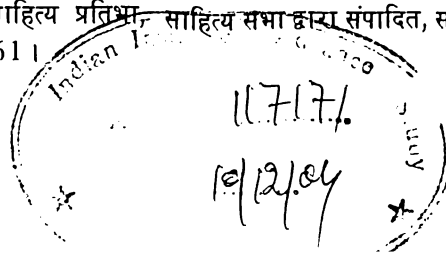 ाहित्य प्रतिभा, साहित्य सभा द्वारा संपादित, स
61।
Indian In
nce
udy
117171.
10/12/04